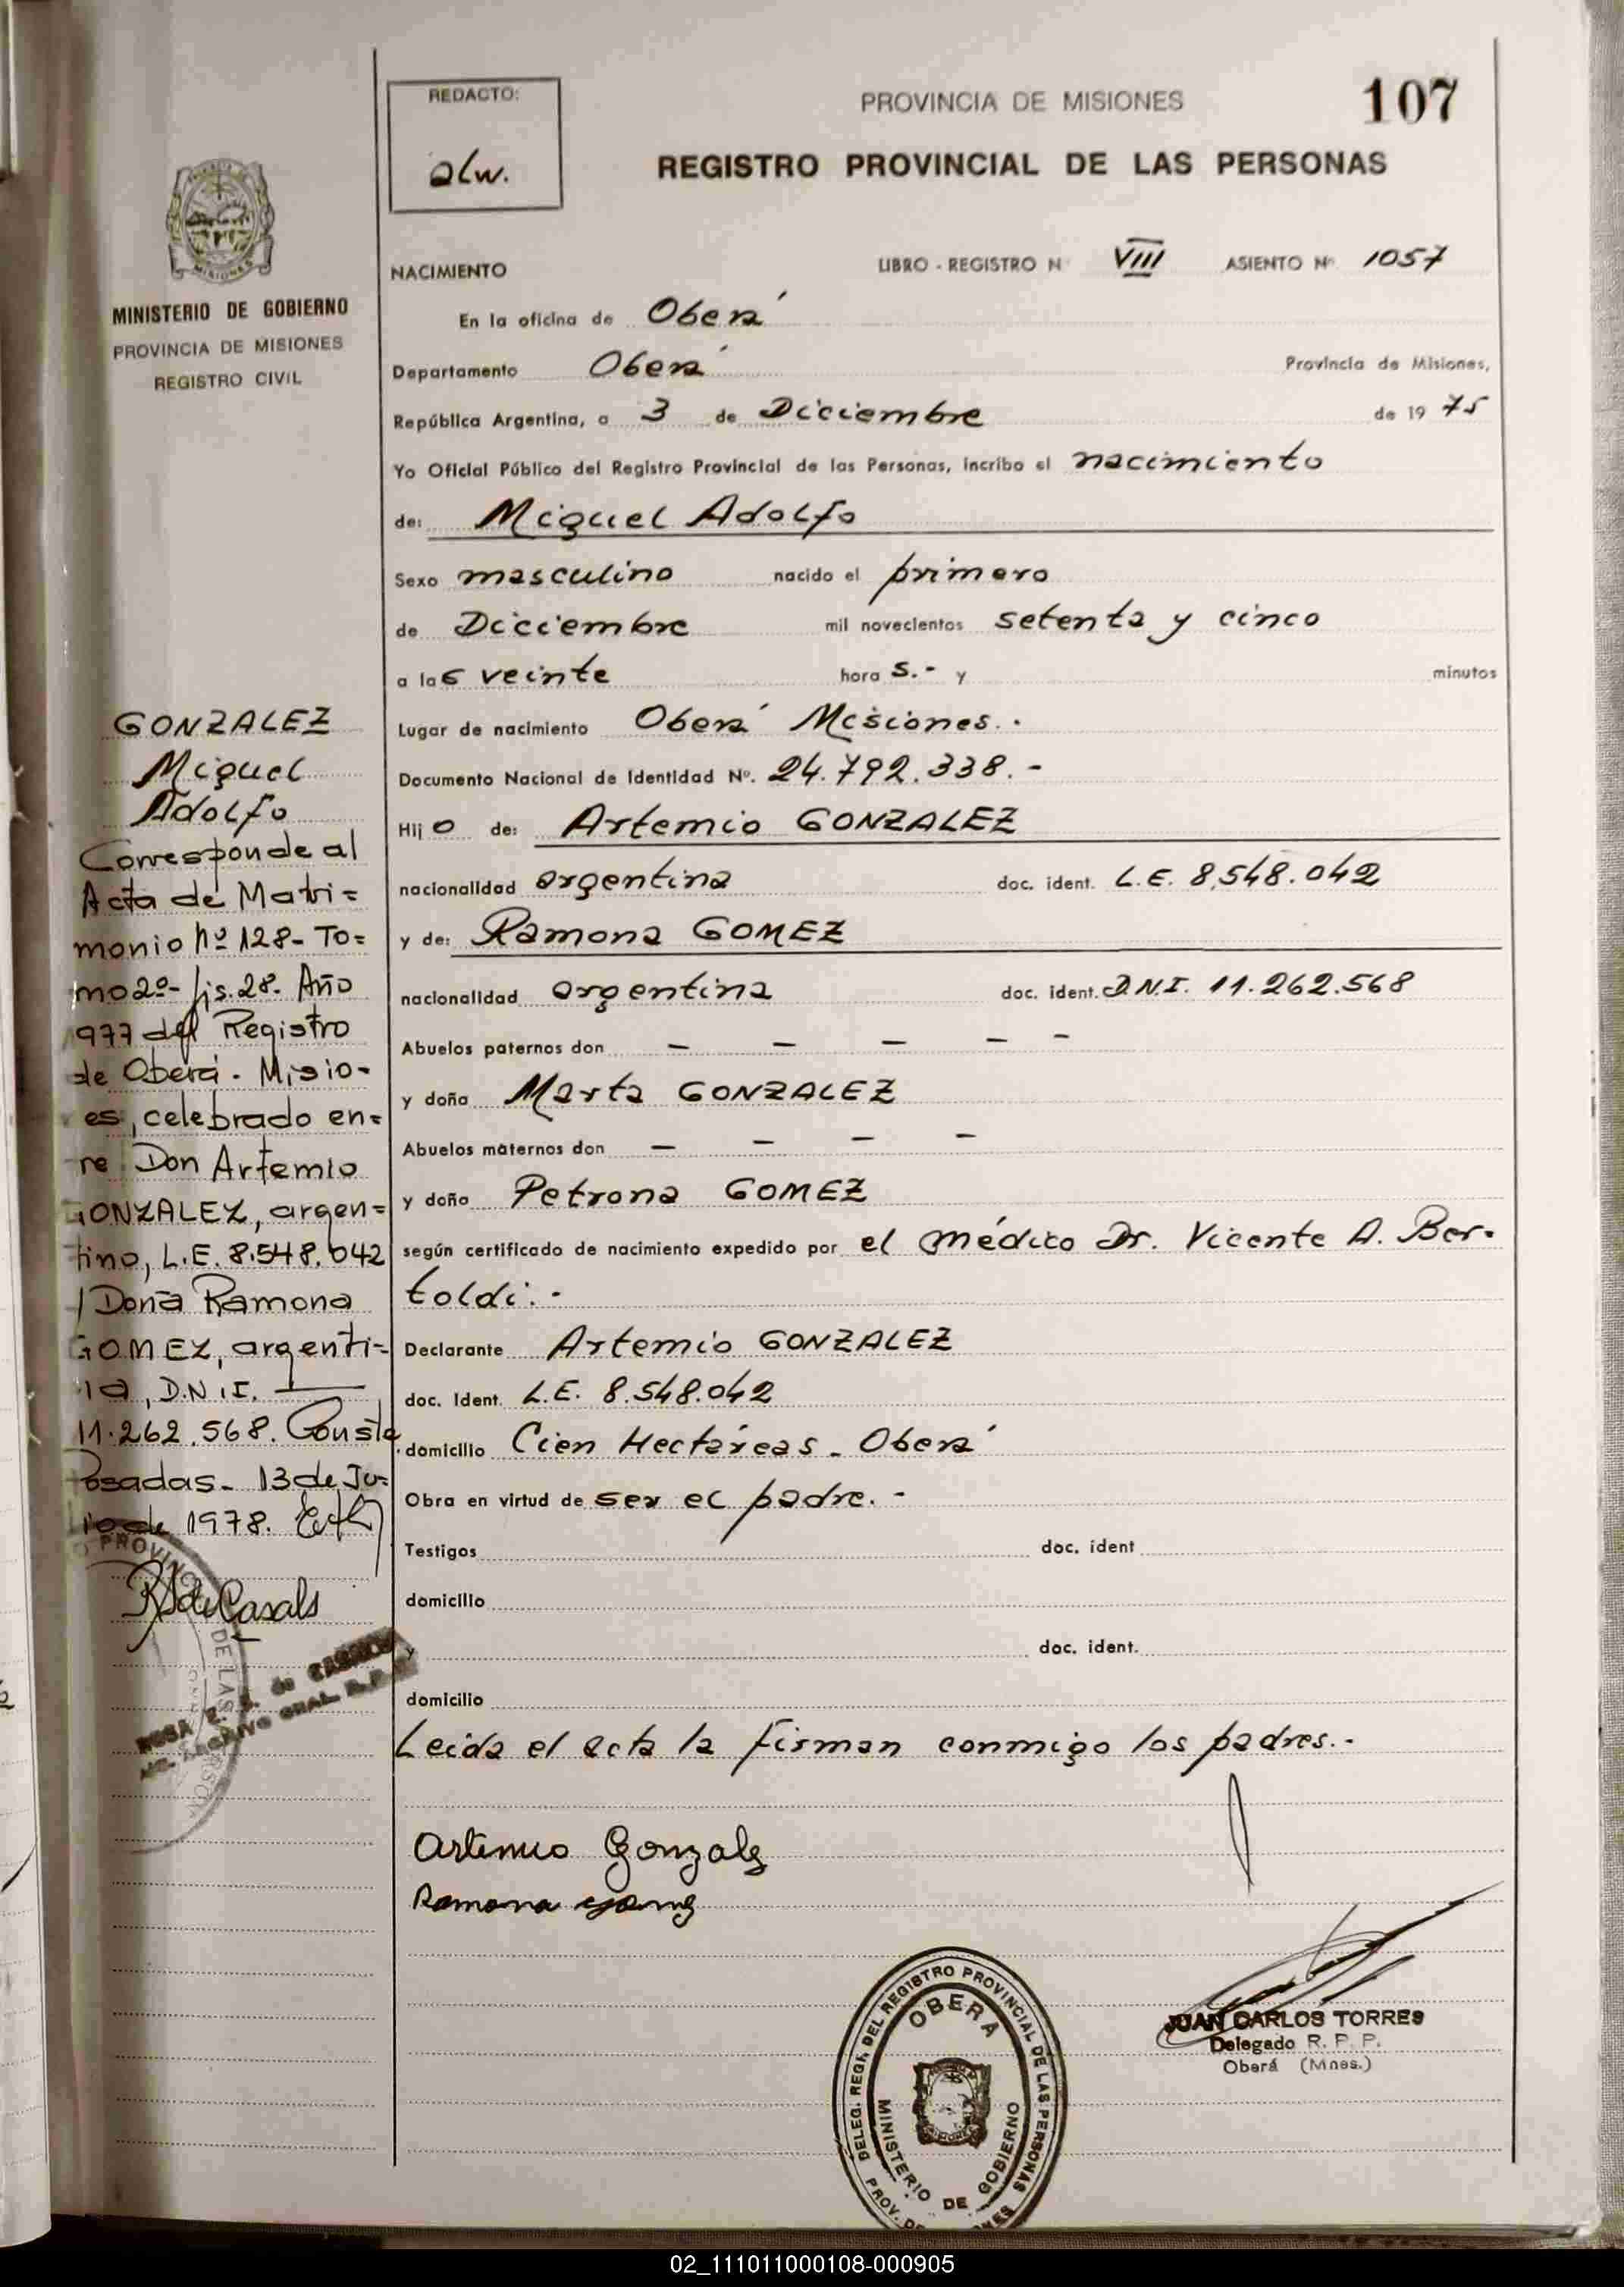 REDACTO:
alw.
PROVINCIA DE MISIONES
107
REGISTRO PROVINCIAL DE LAS PERSONAS
MISIONES
MINISTERIO DE GOBIERNO
PROVINCIA DE MISIONES
REGISTRO CIVIL
NACIMIENTO
LIBRO - REGISTRO N VIII ASIENTO Nº 1057
En la oficina de Oberá
Departamento Oberá Provincia de Misiones,
República Argentina, a 3 de Diciembre de 19 75
Yo Oficial Público del Registro Provincial de las Personas, incribo el nacimiento
de: Miguel Adolfo
Sexo masculino nacido el primero
de Diciembre mil novecientos setenta y cinco
a las veinte hora s.- y minutos
Lugar de nacimiento Oberá Misiones.-
Documento Nacional de Identidad Nº. 24.792.338.-
Hij o de: Artemio GONZALEZ
nacionalidad argentina doc. ident. L.E. 8.548.042
y de: Ramona GOMEZ
nacionalidad argentina doc. ident. D.N.I. 11.262.568
Abuelos paternos don — — — — —
y doña Marta GONZALEZ
Abuelos maternos don — — — —
y doña Petrona GOMEZ
según certificado de nacimiento expedido por el médico Dr. Vicente A. Ber-
toldi.-
Declarante Artemio GONZALEZ
doc. Ident. L.E. 8.548.042
domicilio Cien Hectáreas - Oberá
Obra en virtud de ser el padre.-
Testigos doc. ident
domicilio
y doc. ident.
domicilio
Leida el acta la firman conmigo los padres.-
Artemio Gonzalez
Ramona Gomez
GONZALEZ
Miguel
Adolfo
Corresponde al
Acta de Matri=
monio Nº 128- To=
mo 2º- fs. 28. Año
977 del Registro
de Oberá - Misio-
es, celebrado en=
re Don Artemio
GONZALEZ, argen=
tino, L.E. 8.548.042
Doña Ramona
GOMEZ, argenti=
na, D.N.I. —
11.262.568. Conste
Posadas- 13 de Ju-
io de 1978.
PROVIN DE LAS
ROSA E. de
ARCHIVO GRAL. R.P.P.
DELEG. REGI. DEL REGISTRO PROVINCIAL DE LAS PERSONAS
OBERA
MINISTERIO DE GOBIERNO
PROV. DE
JUAN CARLOS TORRES
Delegado R. P. P.
Oberá (Mnes.)
02_111011000108-000905